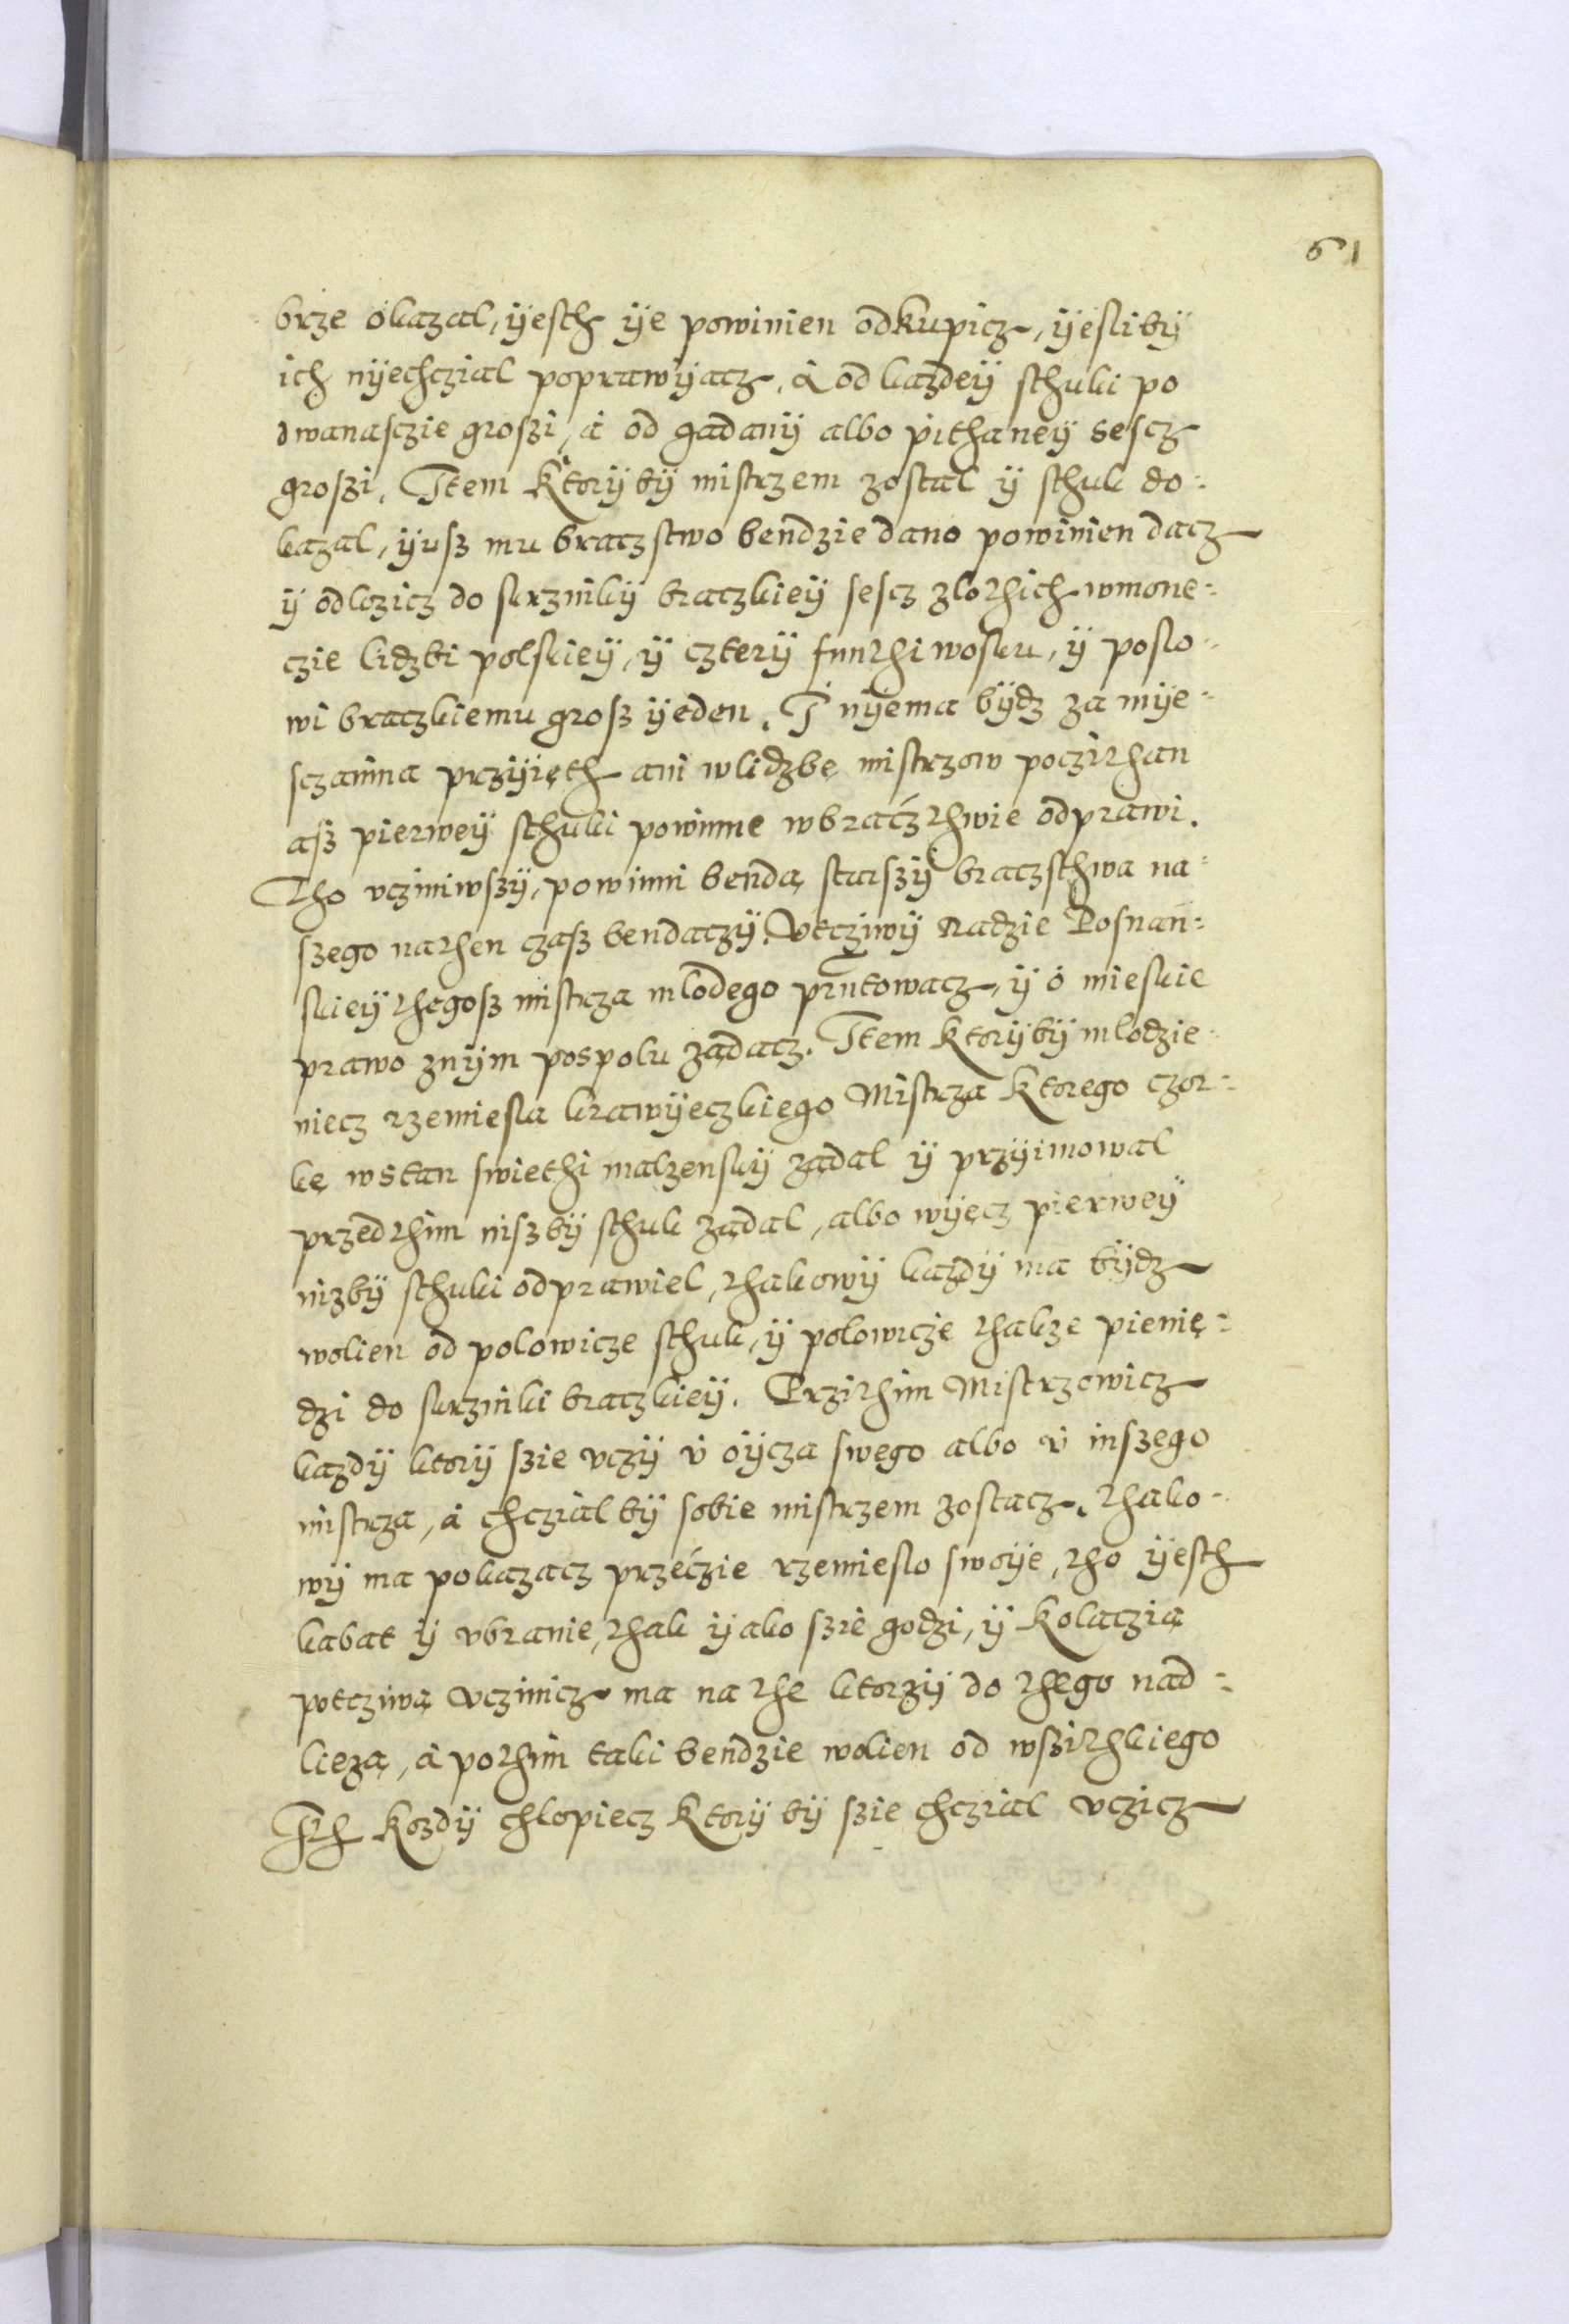 61
brze okazal, ÿesth ÿe powinien odkupicz, ÿeslibÿ
ich nÿechczial poprawÿacz, á od kazdeÿ sthuki po
dwanasczie groszi, á od gadanÿ albo pithaneÿ sescz
groszi. Item ktorÿbÿ mistrzem zostal ÿ sthuk do-
kazal, ÿusz mu braczstwo bendzie dano powinien dacz
ÿ odlozicz do skrzinkÿ braczkieÿ sescz zlothich wmone-
czie lidzbi polskieÿ, ÿ czterÿ funthi wosku, ÿ poslo-
wi braczkiemu grosz ÿeden. I nÿema bÿdz za mÿe-
sczanina przÿięth ani wlidzbę mistrzow poczithan
asz pierweÿ sthuki powinne wbraczthwie odprawi.
Tho vcziniwszÿ, powinni benda starszÿ braczsthwa na-
szego nathen czasz bendaczÿ, Vtcziwÿ Radzie Posnan-
skieÿ thegosz mistrza mlodego pr̃ntowacz, ÿ ó mieskie
prawo znÿm pospolu ządacz. Item ktorÿbÿ mlodzie-
niecz rzemiesla krawÿeczkiego Mistrza ktorego czor-
kę wstan swiethi malzenskÿ ządal ÿ przÿimowal
przedthim niszbÿ sthuk ządal, albo wÿęcz pierweÿ
nizbÿ sthuki odprawiel, thakowÿ kazdÿ ma bÿdz
wolien od polowicze sthuk, ÿ polowicze thakze pienię-
dzi do skrzinki braczkieÿ. Przithim Mistrzowicz
kazdÿ ktorÿ szie vczÿ v́ oÿcza swego albo v́ inszego
mistrza, á chczialbÿ sobie mistrzem zostacz, thako-
wÿ ma pokazacz przeczie rzemieslo swoÿe, tho ÿesth
kabat ÿ vbranie, thak ÿako szie godzi, ÿ kolaczią
potcziwą vczinicz ma na the ktorzÿ do thego nad-
lieżą, á pothim taki bendzie wolien od wszithkiego
Ith kozdÿ chlopiecz ktorÿbÿ szie chczial vczicz